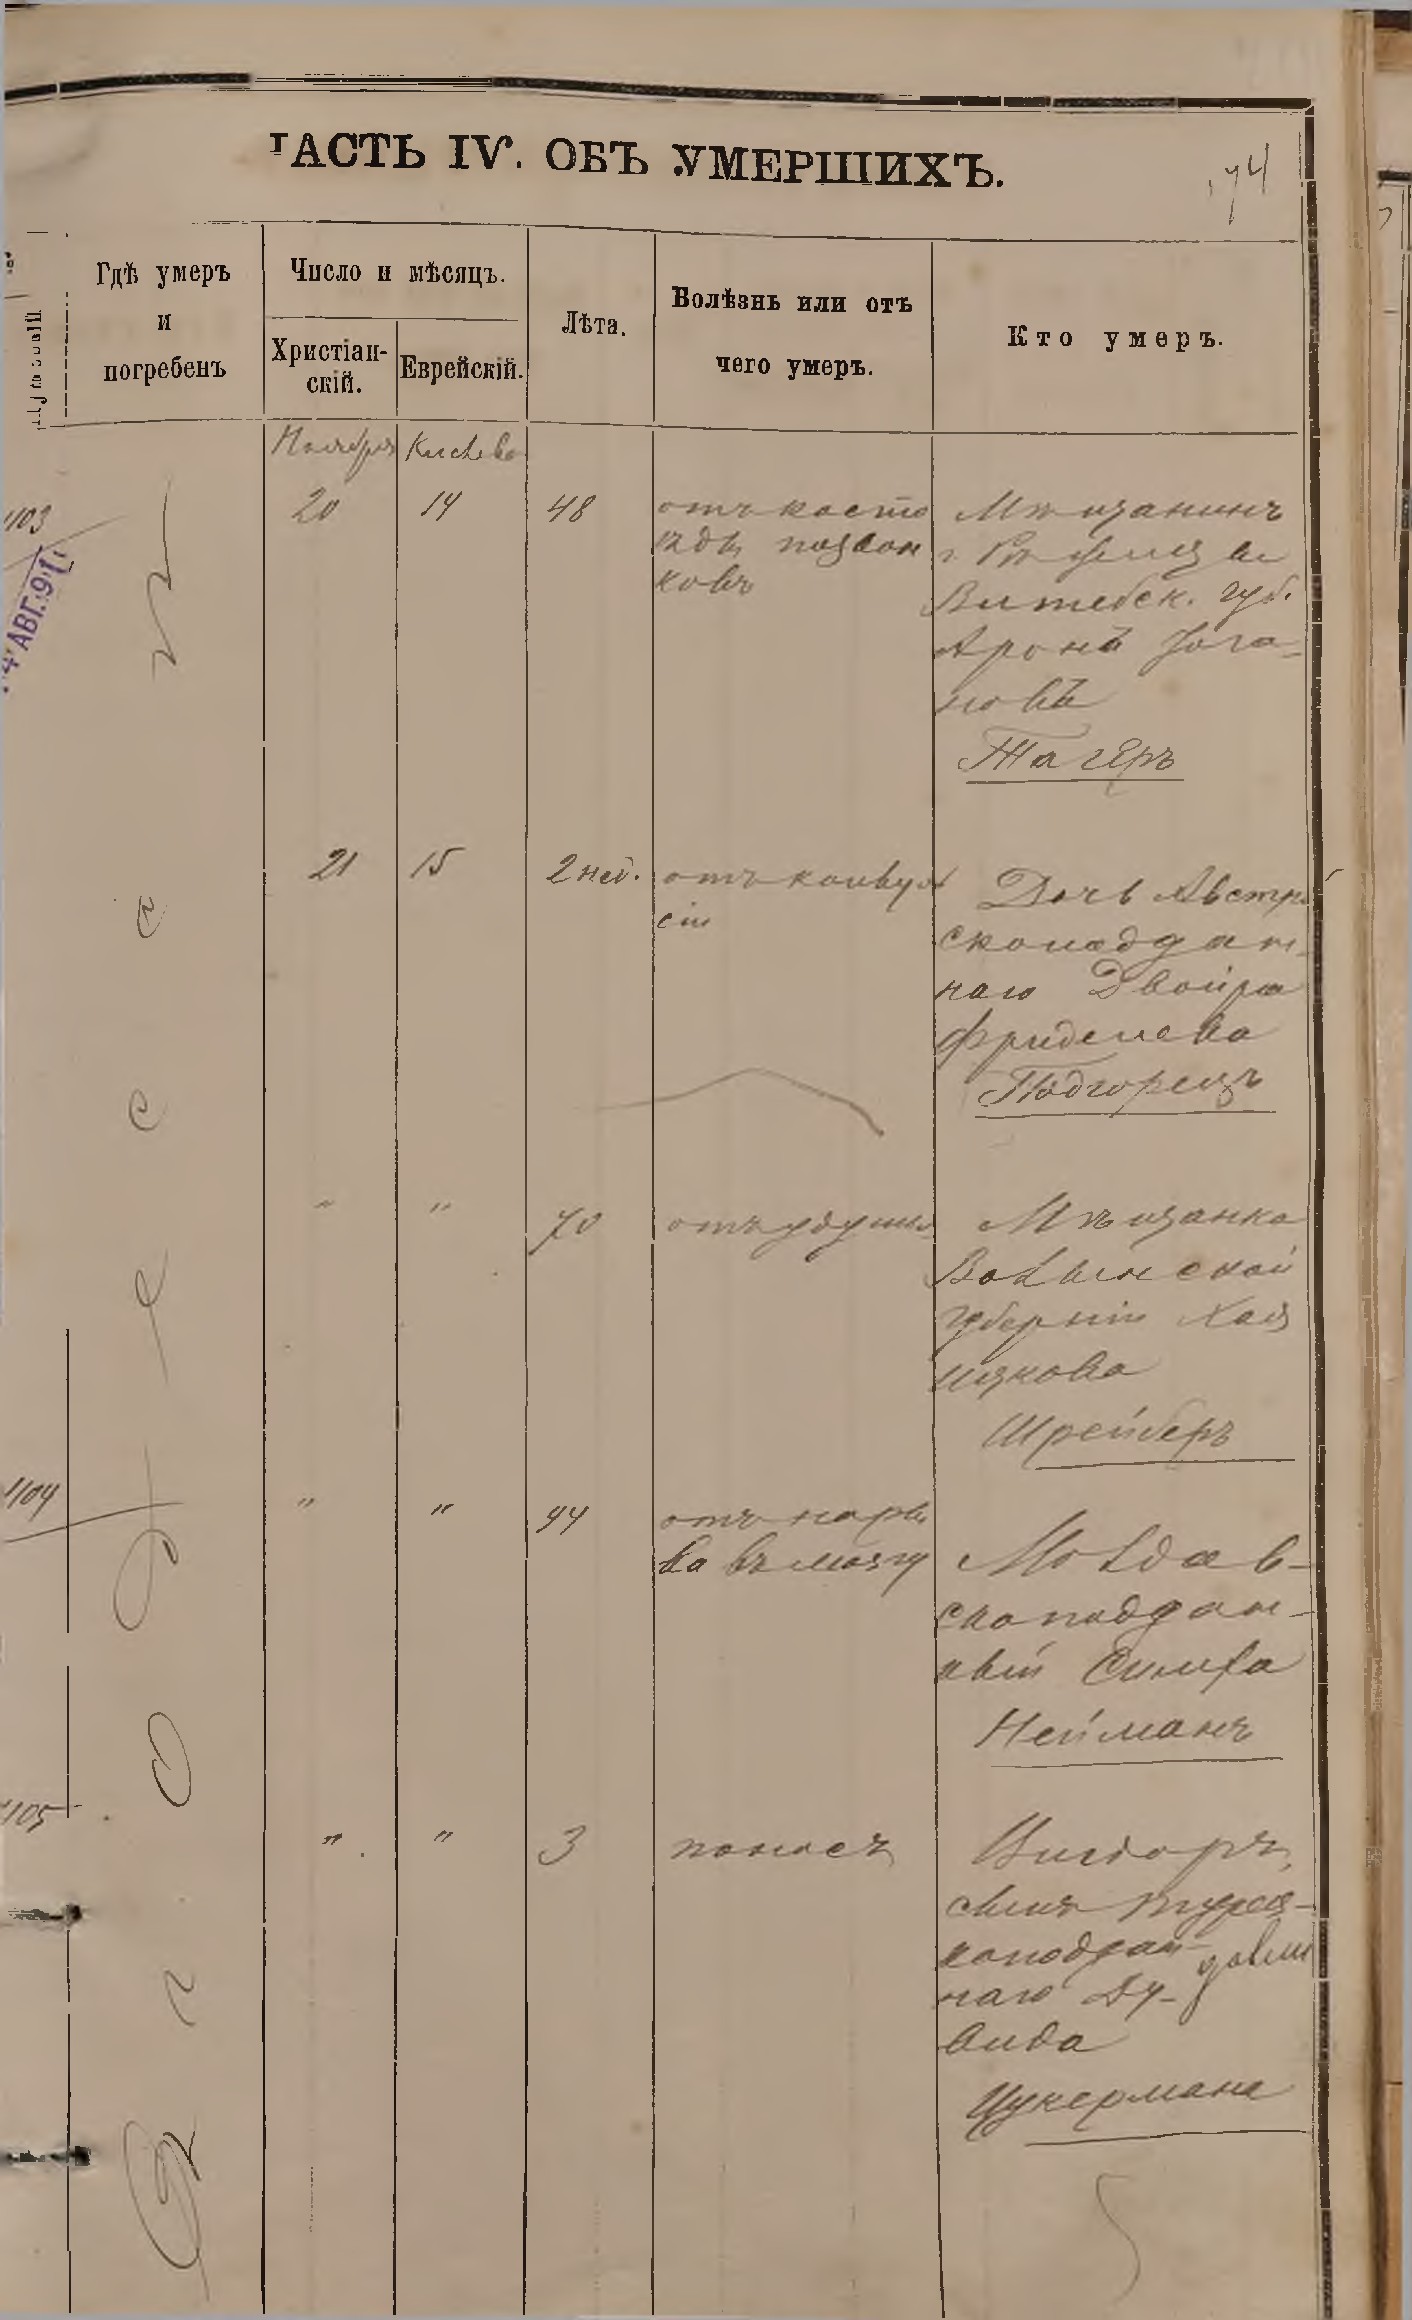 ЧАСТЬ IV. ОБЪ УМЕРШИХЪ.
174
Гдѣ умеръ
и
погребенъ
Число и мѣсяцъ.
Христіан-
скій.
Еврейскій.
Лѣта.
Болѣзнь или отъ
чего умеръ.
Кто умеръ.
Ноября
Кислева
1103
4 АВГ. 91
20
14
48
отъ косто
ѣды позвон
ковъ
Мѣщанинъ
г. Рѣжицы
Витебск. губ.
Аронъ
новъ
Тагеръ
21
15
2 нед.
отъ конвул
сіи
Дочь Австрій
скоподдан-
наго Двойра
Фриделева
Подгорецъ
"
"
70
отъ удушья
Мѣщанка
Волынской
губерніи Хая
Ицкова
Шрейберъ
1104
"
"
44
отъ нары
ва въ мозгу
Молдав-
скоподдан-
ный Симха
Нейманъ
1105
"
"
3
поносъ
Исидоръ,
сынъ турец-
коподдан-
наго Ду-
вида
Цукермана
Одесса